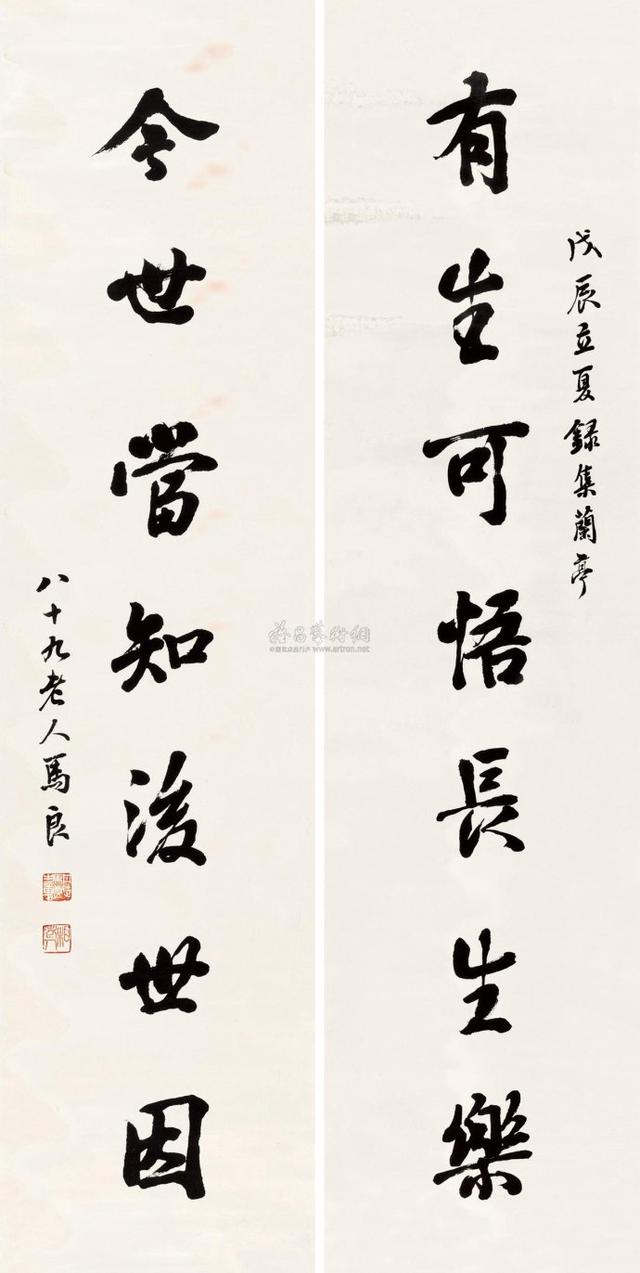 戊辰立夏録集蘭亭
有生可悟長生樂
今世當知後世因
八十九老人馬良
www.artron.net